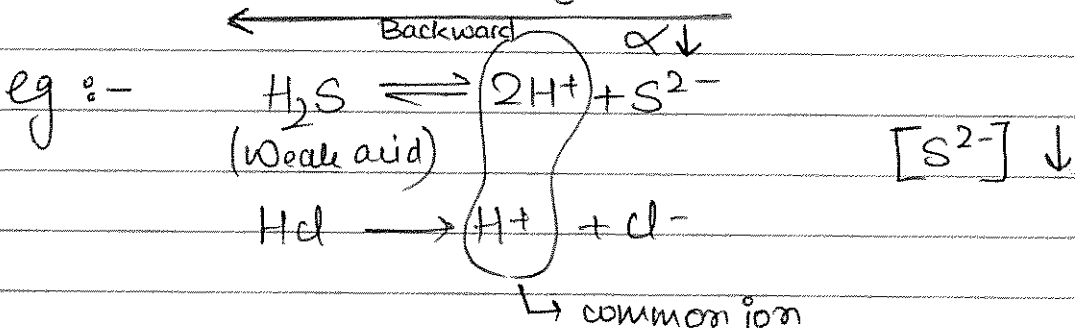 Backward α↓
eg :- H₂S ⇌ 2H⁺ + S²⁻
(Weak acid) [S²⁻] ↓
HCl ⟶ H⁺ + Cl⁻
↳ common ion